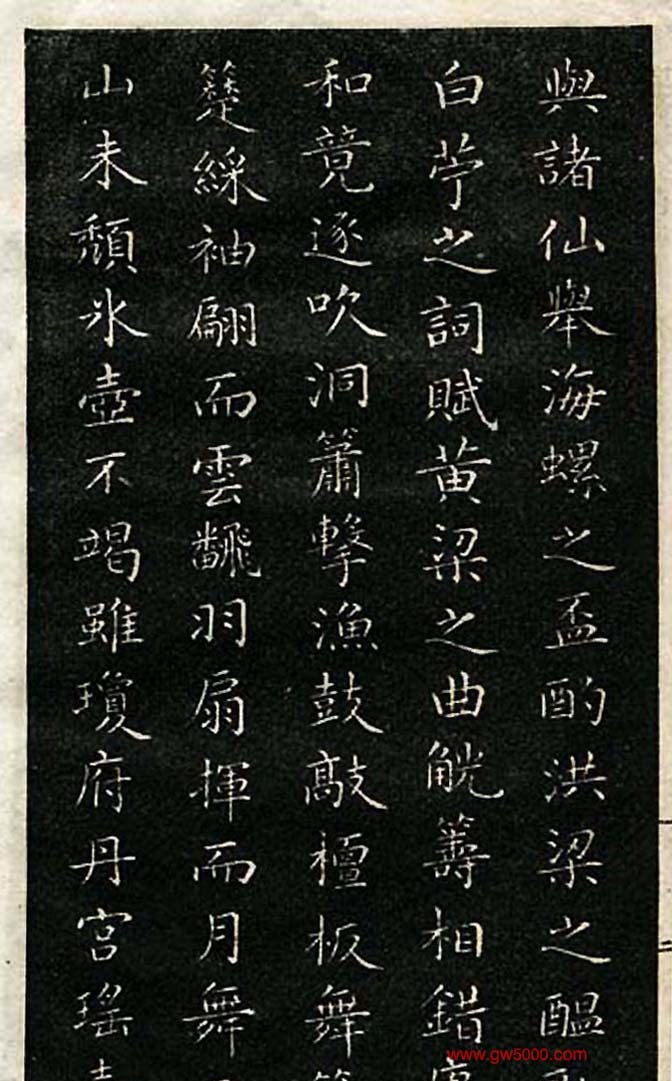 與諸仙舉海螺之盃酌洪梁之醖
白苧之詞賦黃梁之曲觥籌相錯
和竟逐吹洞簫擊漁鼓敲檀板舞
簉綵袖翩而雲飜羽扇揮而月舞
山未頹氷壺不竭雖瓊府丹宮瑤
www.gw5000.com